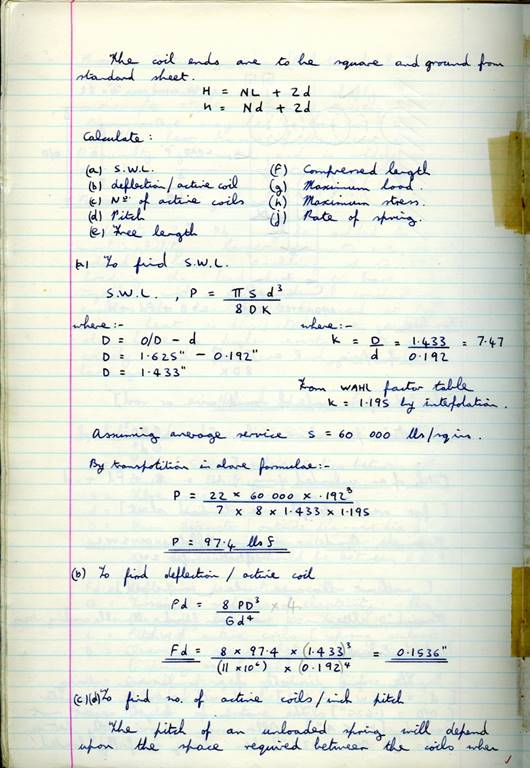 The coil ends are to be square and ground from
standard sheet.
H = NL + 2d
h = Nd + 2d
Calculate :
(a) S.W.L. (f) Compressed length
(b) deflection / active coil (g) Maximum load.
(c) No. of active coils (h) Maximum stress.
(d) Pitch (j) Rate of spring.
(e) Free length
(a) To find S.W.L.
S.W.L. , P = π S d³ / 8 D K
where :- where :-
D = O/D - d k = D / d = 1.433 / 0.192 = 7.47
D = 1.625" - 0.192"
D = 1.433"
From WAHL factor table
K = 1.195 by interpolation.
Assuming average service S = 60 000 lbs/sq ins.
By transpotition in above formulae :-
P = 22 × 60 000 × .192³ / 7 × 8 × 1.433 × 1.195
P = 97.4 lbs f
(b) To find deflection / active coil
Fd = 8 PD³ / G d⁴ × 4
Fd = 8 × 97.4 × (1.433)³ / (11 × 10⁶) × (0.192)⁴ = 0.1536"
(c)(d) To find no. of active coils / inch pitch
The pitch of an unloaded spring will depend
upon the space required between the coils when